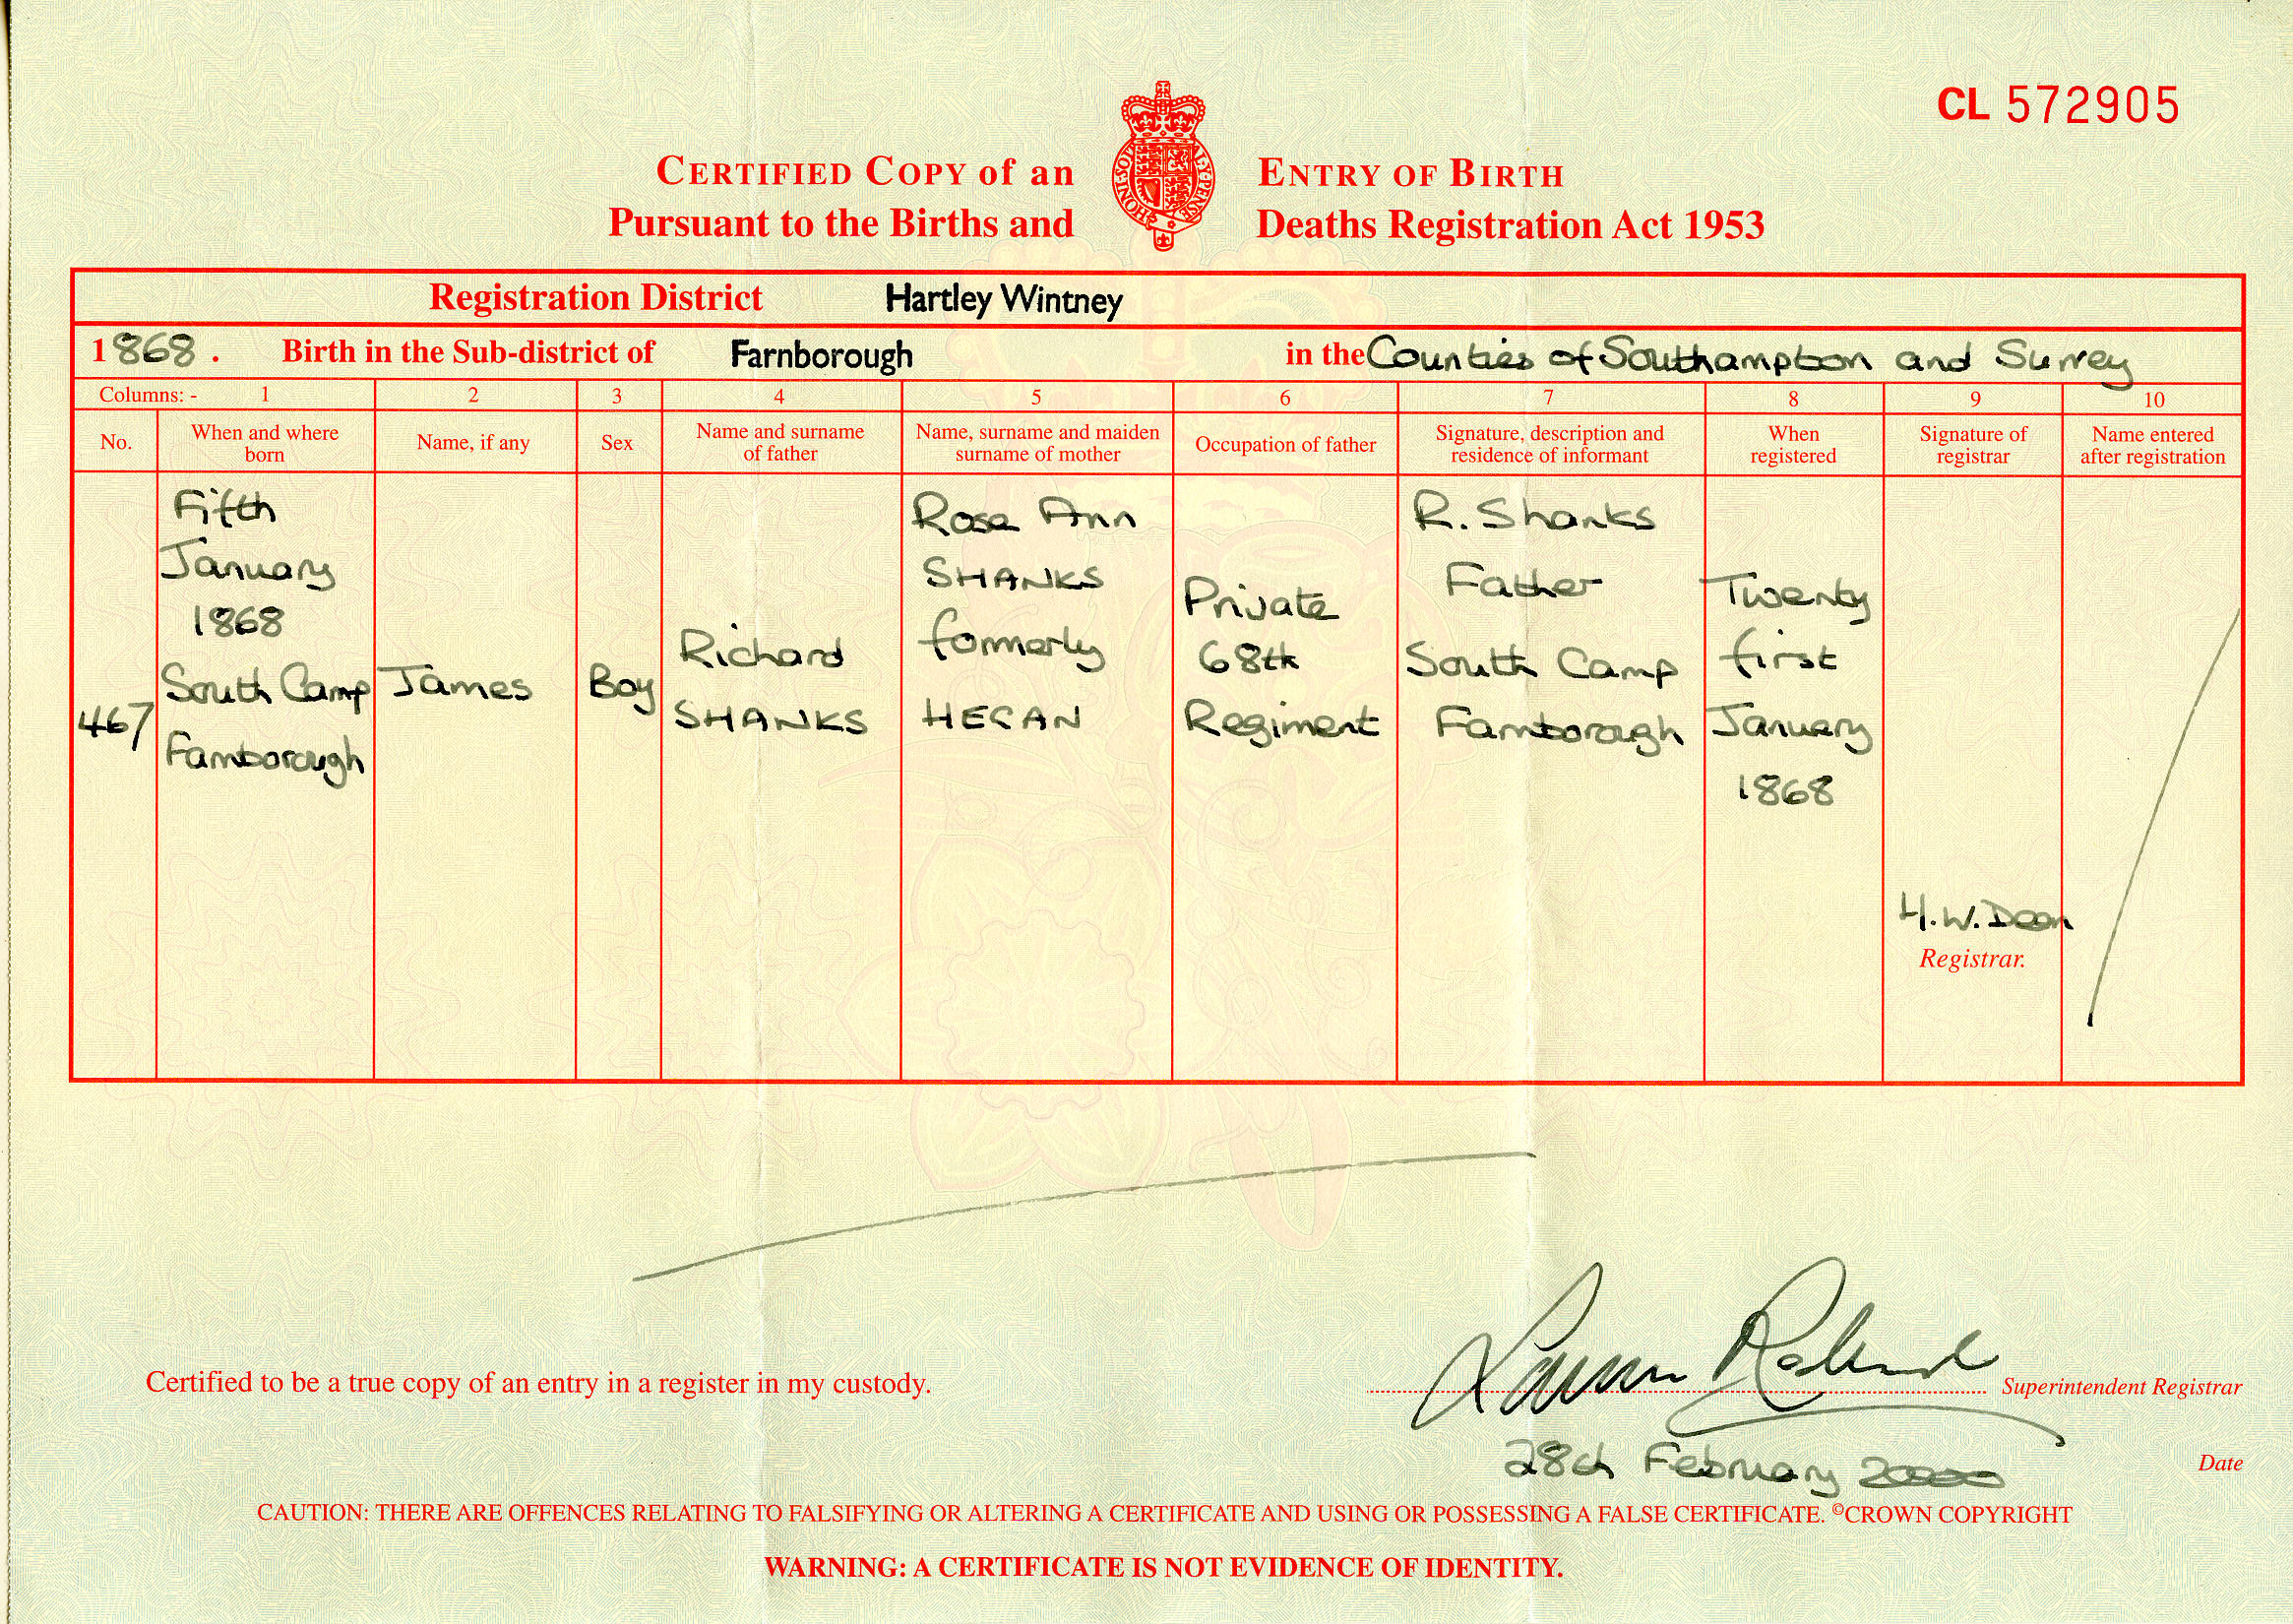 CL 572905
CERTIFIED COPY of an ENTRY OF BIRTH
Pursuant to the Births and Deaths Registration Act 1953
HONI·SOIT
AL·Y·PENSE
Registration District Hartley Wintney
1868. Birth in the Sub-district of Farnborough in the Counties of Southampton and Surrey
Columns: - 1 2 3 4 5 6 7 8 9 10
No.
When and where
born
Name, if any
Sex
Name and surname
of father
Name, surname and maiden
surname of mother
Occupation of father
Signature, description and
residence of informant
When
registered
Signature of
registrar
Name entered
after registration
467
Fifth
January
1868
South Camp
Farnborough
James
Boy
Richard
SHANKS
Rose Ann
SHANKS
formerly
HEGAN
Private
68th
Regiment
R. Shanks
Father
South Camp
Farnborough
Twenty
first
January
1868
H.W. Dean
Registrar.
Certified to be a true copy of an entry in a register in my custody.
Superintendent Registrar
28th February 2000
Date
CAUTION: THERE ARE OFFENCES RELATING TO FALSIFYING OR ALTERING A CERTIFICATE AND USING OR POSSESSING A FALSE CERTIFICATE. ©CROWN COPYRIGHT
WARNING: A CERTIFICATE IS NOT EVIDENCE OF IDENTITY.